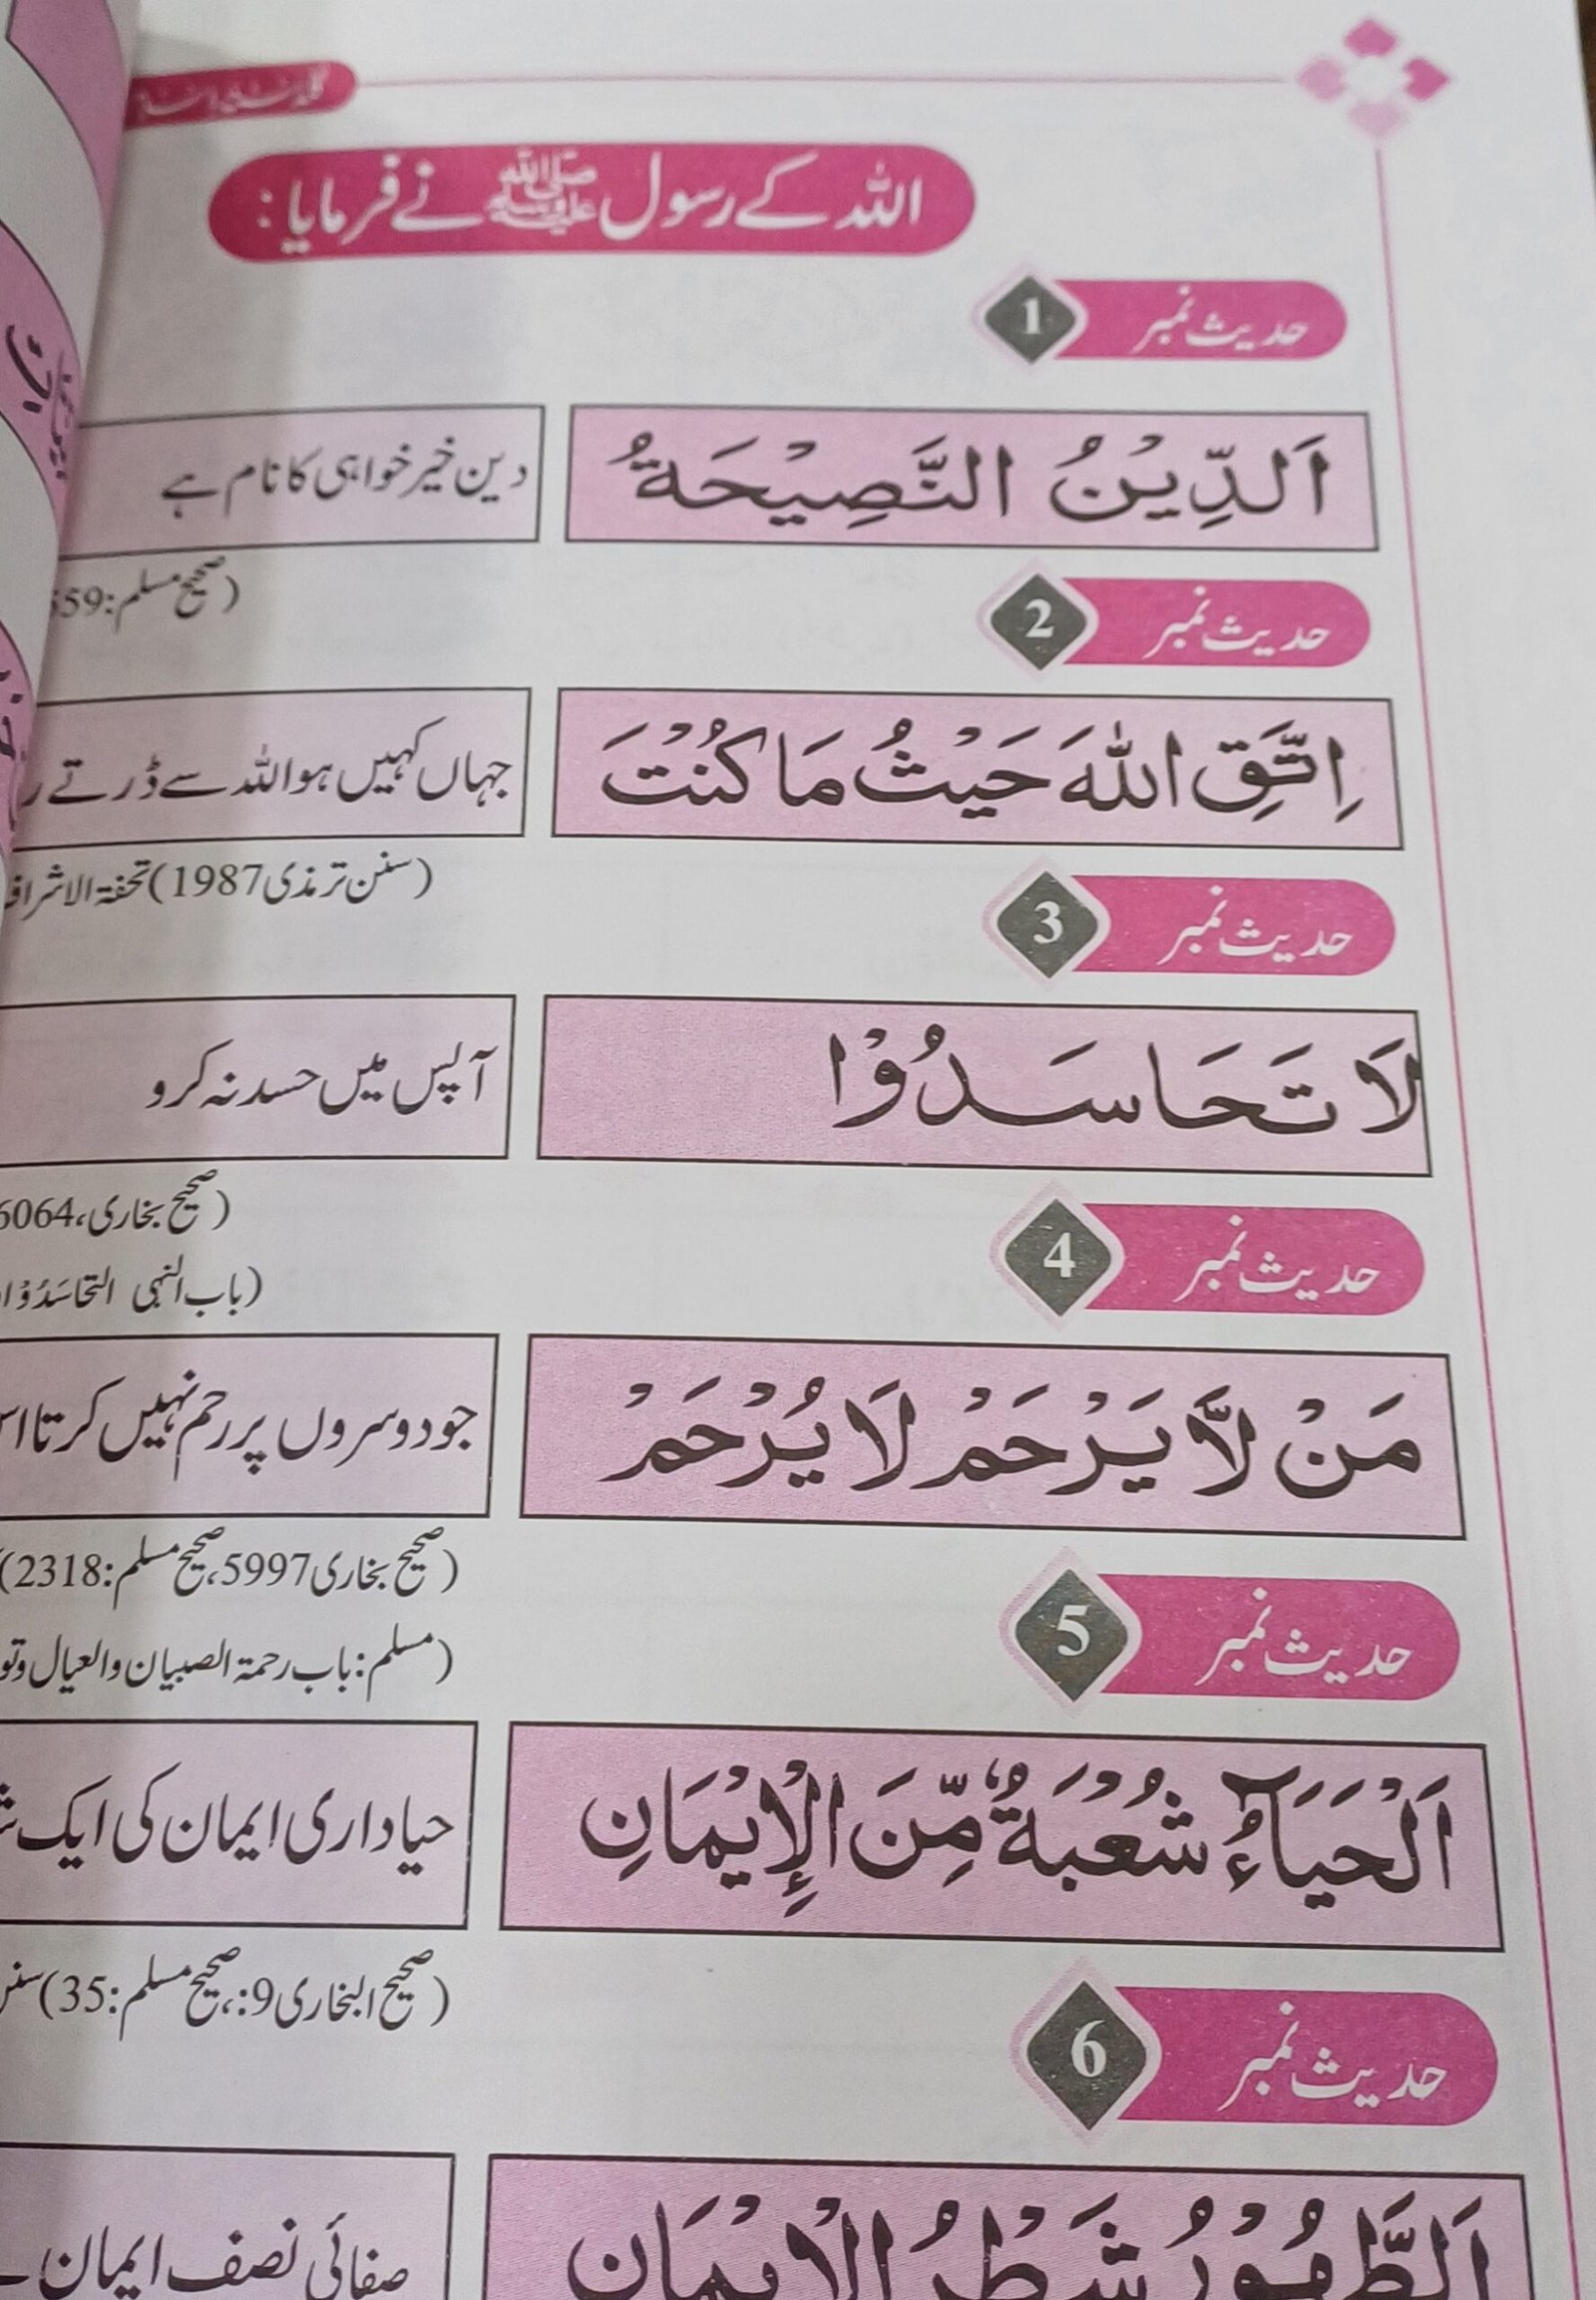 اللہ کے رسول ﷺ نے فرمایا:
حدیث نمبر 1
اَلدِّيْنُ النَّصِيْحَةُ
دین خیر خواہی کا نام ہے
(صحیح مسلم:59
حدیث نمبر 2
اِتَّقِ اللّٰهَ حَيْثُ مَا كُنْتَ
جہاں کہیں ہو اللہ سے ڈرتے
(سنن ترمذی 1987) تحفۃ
حدیث نمبر 3
لَا تَحَاسَدُوْا
آپس میں حسد نہ کرو
(صحیح بخاری،6064
(باب النہی التحَاسَدُوْا
حدیث نمبر 4
مَنْ لَّا يَرْحَمْ لَا يُرْحَمْ
جو دوسروں پر رحم نہیں کرتا
(صحیح بخاری 5997،صحیح مسلم:2318)
(مسلم:باب رحمۃ الصبیان والعیال
حدیث نمبر 5
اَلْحَيَآءُ شُعْبَةٌ مِّنَ الْإِيْمَانِ
حیاداری ایمان کی ایک
(صحیح البخاری 9:،صحیح مسلم:35)
حدیث نمبر 6
اَلطُّهُوْرُ شَطْرُ الْاِيْمَانِ
صفائی نصف ایمان